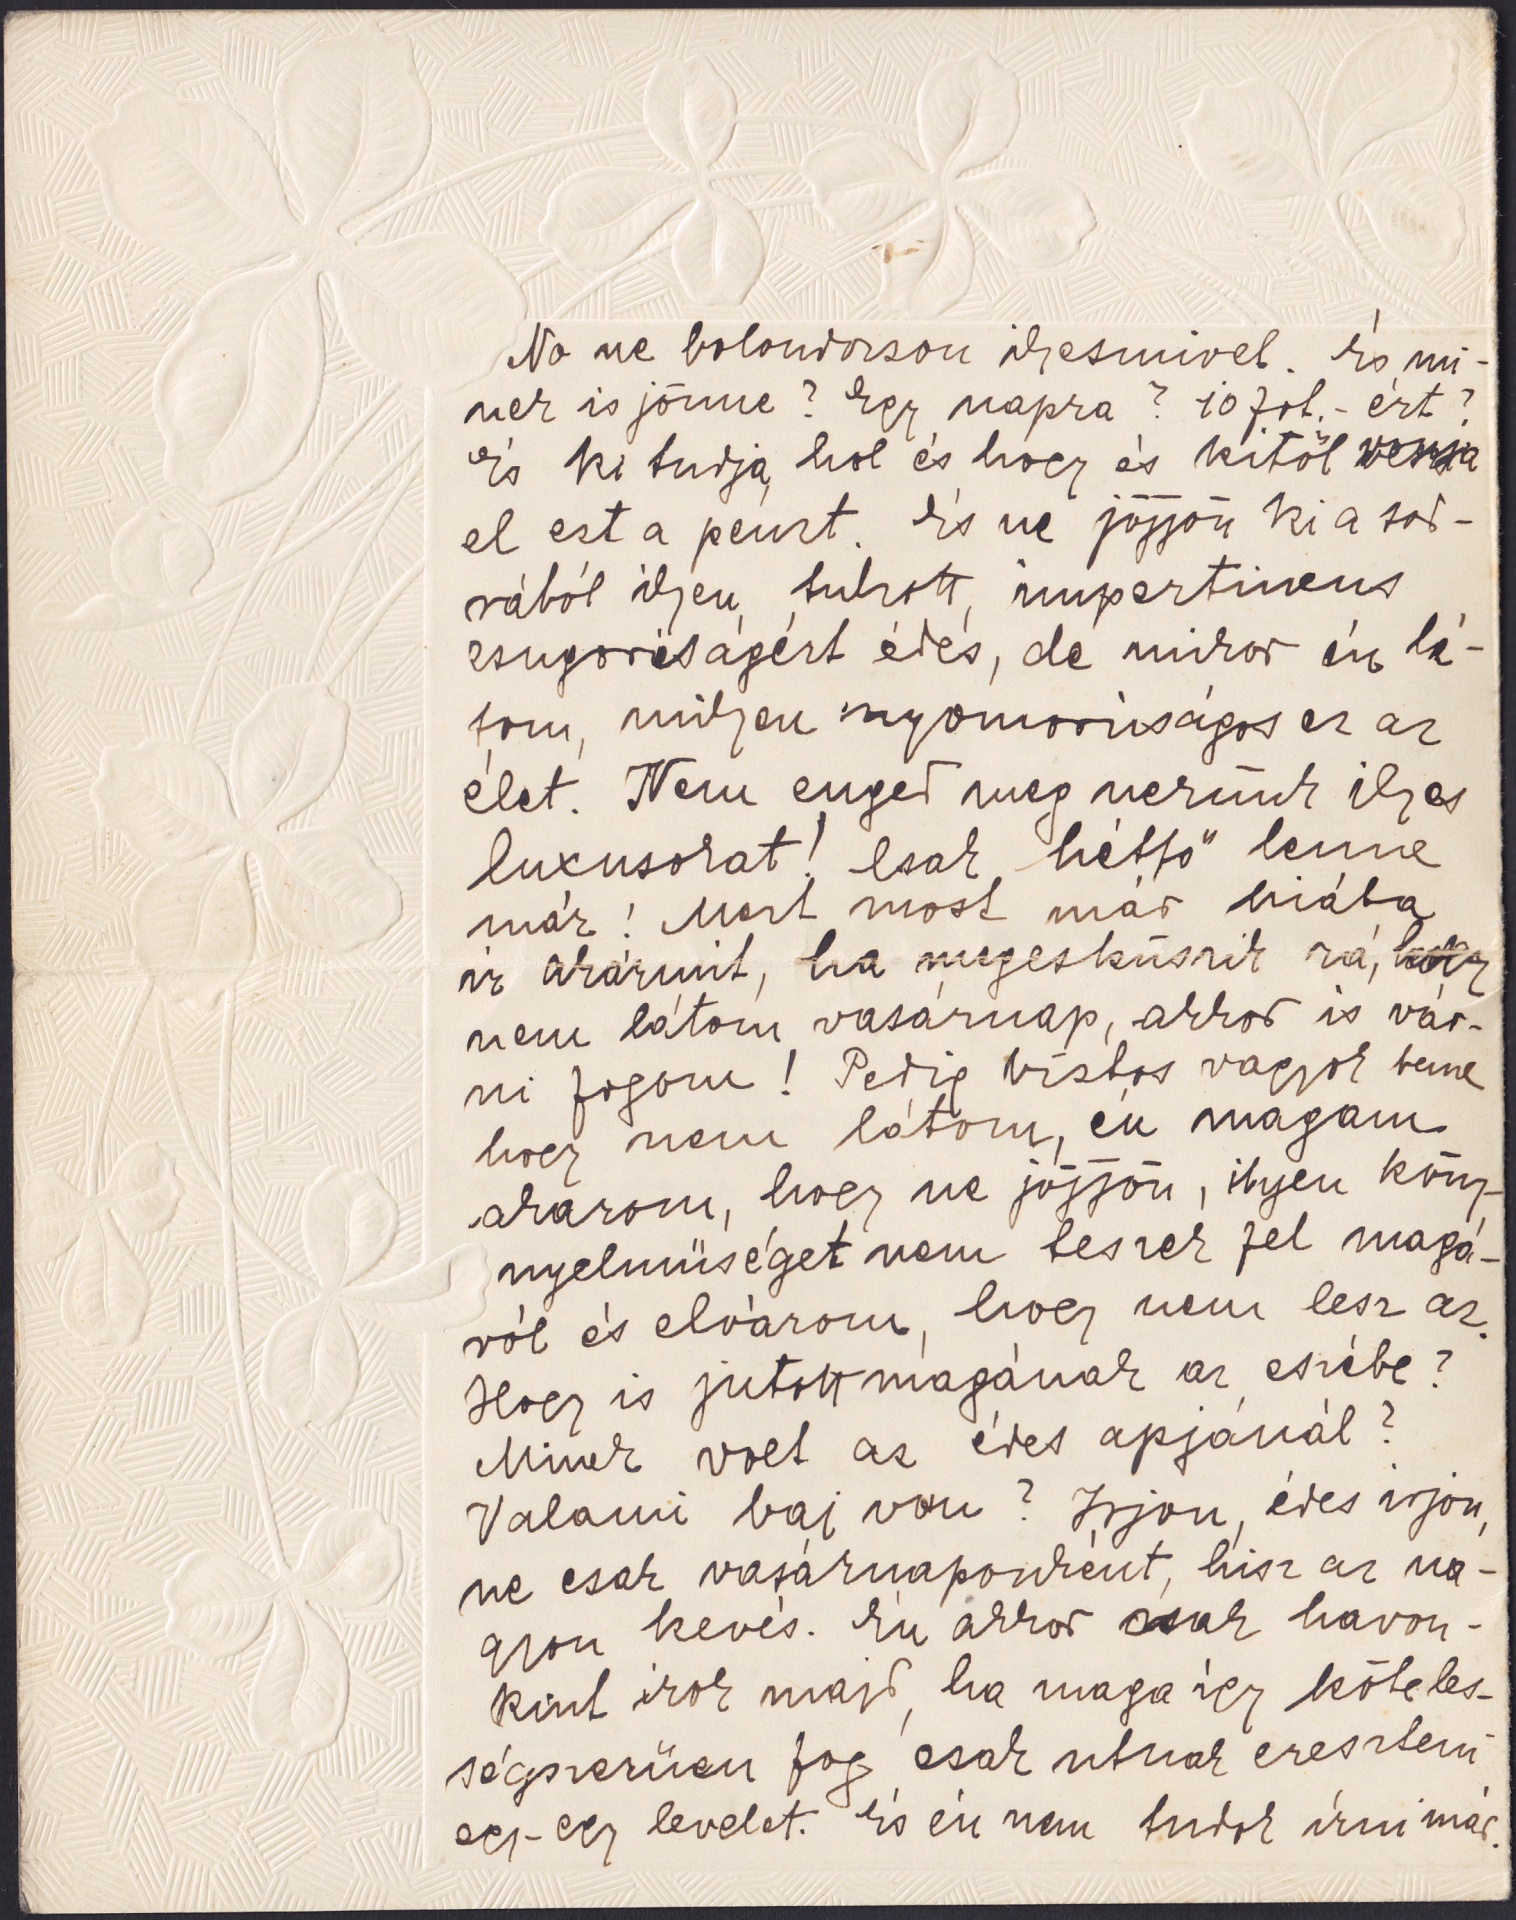 No ne bolondozzon ilyesmivel. És mi-
nek is jönne? Egy napra? 10 frt.- ért?
És ki tudja, hol és hogy és kitől vonja
el ezt a pénzt. És ne jőjjön ki a sod-
rából ilyen túlzott, impertinens
zsugoriságért édes, de mikor én lá-
tom, milyen nyomorúságos ez az
élet. Nem enged meg nekünk ilyes
luxusokat! Csak hétfő lenne
már! Mert most már hiába
ír akármit, ha megesküszik rá, hogy
nem látom vasárnap, akkor is vár-
ni fogom! Pedig biztos vagyok benne
hogy nem látom, én magam
akarom, hogy ne jőjjön, ilyen köny-
nyelmüséget nem teszek fel magá-
ról és elvárom, hogy nem lesz az.
Hogy is jutott magának az eszébe?
Minek volt az édes apjánál?
Valami baj van? Irjon, édes irjon,
ne csak vasárnaponként, hisz az na-
gyon kevés. Én akkor csak havon-
kint irok majd, ha maga így köteles-
ségszerüen fog csak utnak ereszteni
egy-egy levelet. És én nem tudok írni már.